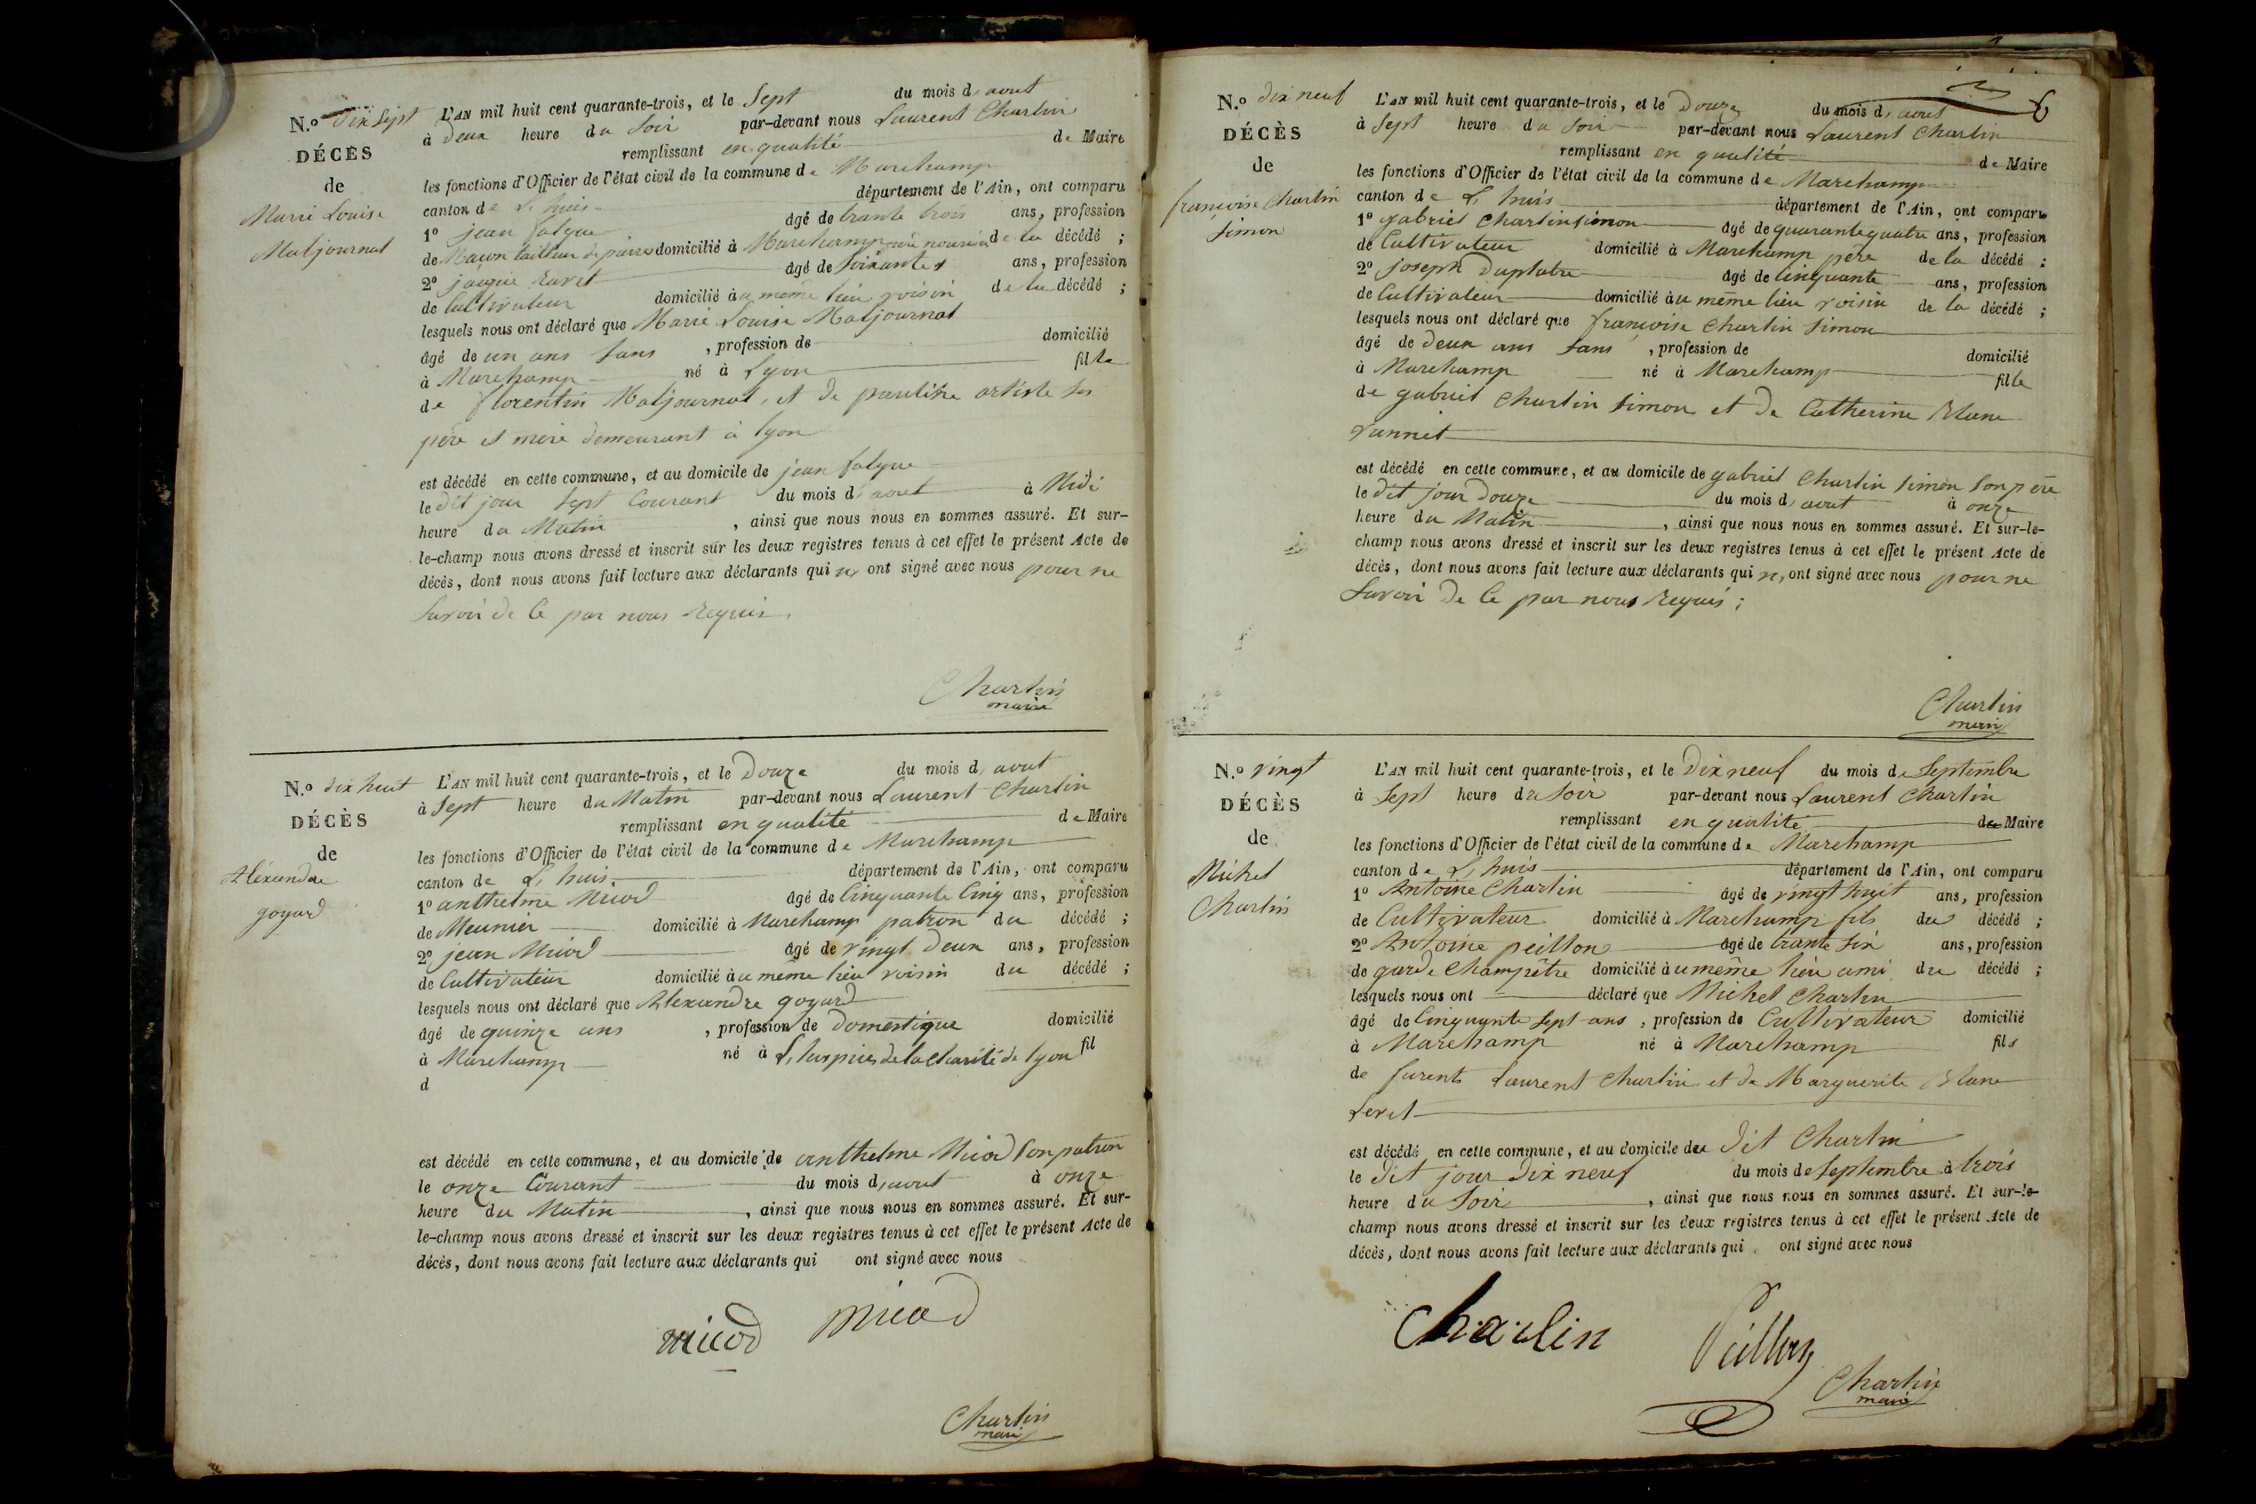 N.o dix Sept
DÉCÈS
de
Marie Louise
Maljournal
L'AN mil huit cent quarante-trois, et le Sept du mois d, aout
à deux heure du Soir par-devant nous Laurent Charlin
remplissant en qualité de Maire
les fonctions d'Officier de l'état civil de la commune de Marchamp
canton de L, huis département de l'Ain, ont comparu
1o jean falque âgé de trante trois ans, profession
de Maçon tailleur de pierre domicilié à Marchamp de la décédé ;
2o jaque Ravet âgé de Soixante ans, profession
de Cultivateur domicilié àu même lieu voisin de la décédé ;
lesquels nous ont déclaré que Marie Louise Maljournal
âgé de un ans Sans , profession de domicilié
à Marchamp né à Lyon fille
de florentin Maljournal, et de pauline artiste Ses
père et mère demeurant à lyon
est décédé en cette commune, et au domicile de jean falque
le dit jour Sept Courant du mois d, aout à Midi
heure du Matin , ainsi que nous nous en sommes assuré. Et sur-
le-champ nous avons dressé et inscrit sur les deux registres tenus à cet effet le présent Acte de
décès, dont nous avons fait lecture aux déclarants qui n, ont signé avec nous pour ne
Savoir de Ce par nous Requis.
Charlin
maire
N.o dix huit
DÉCÈS
de
Aléxandre
goyard
L'AN mil huit cent quarante-trois, et le Douze du mois d, aout
à Sept heure du Matin par-devant nous Laurent Charlin
remplissant en qualité de Maire
les fonctions d'Officier de l'état civil de la commune de Marchamp
canton de L, huis département de l'Ain, ont comparu
1o anthelme Micod âgé de Cinquante Cinq ans, profession
de Meunier domicilié à Marchamp patron du décédé ;
2o jean Micod âgé de vingt deux ans, profession
de Cultivateur domicilié àu même lieu voisin du décédé ;
lesquels nous ont déclaré que Alexandre goyard
âgé de quinze ans , profession de domestique domicilié
à Marchamp né à L, huspices de la Charité de lyon fil
d
est décédé en cette commune, et au domicile de anthelme Micod Son patron
le onze Courant du mois d, aout à onze
heure du Matin , ainsi que nous nous en sommes assuré. Et sur-
le-champ nous avons dressé et inscrit sur les deux registres tenus à cet effet le présent Acte de
décès, dont nous avons fait lecture aux déclarants qui ont signé avec nous
micod micod
Charlin
maire
N.o dix neuf
DÉCÈS
de
françoise Charlin
Simon
L'AN mil huit cent quarante-trois, et le Douze du mois d, aout
à Sept heure du Soir par-devant nous Laurent Charlin
remplissant en qualité de Maire
les fonctions d'Officier de l'état civil de la commune de Marchamp
canton de L, huis département de l'Ain, ont comparu
1o gabriel Charlin Simon âgé de quarante quatre ans, profession
de Cultivateur domicilié à Marchamp père de la décédé ;
2o joseph Duplatre âgé de Cinquante ans, profession
de Cultivateur domicilié àu même lieu voisin de la décédé ;
lesquels nous ont déclaré que françoise Charlin Simon
âgé de deux ans Sans , profession de domicilié
à Marchamp né à Marchamp fille
de gabriel Charlin Simon et de Catherine Blanc
vannet
est décédé en cette commune, et au domicile de gabriel Charlin Simon Son père
le dit jour Douze du mois d, aout à onze
heure du Matin , ainsi que nous nous en sommes assuré. Et sur-le-
champ nous avons dressé et inscrit sur les deux registres tenus à cet effet le présent Acte de
décès, dont nous avons fait lecture aux déclarants qui n, ont signé avec nous pour ne
Savoir de Ce par nous Requis ;
Charlin
maire
N.o vingt
DÉCÈS
de
Michel
Charlin
L'AN mil huit cent quarante-trois, et le Dix neuf du mois de Septembre
à Sept heure du Soir par-devant nous Laurent Charlin
remplissant en qualité de Maire
les fonctions d'Officier de l'état civil de la commune de Marchamp
canton de L, huis département de l'Ain, ont comparu
1o Antoine Charlin âgé de vingt huit ans, profession
de Cultivateur domicilié à Marchamp fils du décédé ;
2o Antoine peillon âgé de trante Six ans, profession
de garde Champêtre domicilié àu même lieu ami du décédé ;
lesquels nous ont déclaré que Michel Charlin
âgé de Cinquante Sept ans , profession de Cultivateur domicilié
à Marchamp né à Marchamp fils
de furent Laurent Charlin et de Marguerite Blanc
Levet
est décédé en cette commune, et au domicile du dit Charlin
le dit jour dix neuf du mois de Septembre à trois
heure du Soir , ainsi que nous nous en sommes assuré. Et sur-le-
champ nous avons dressé et inscrit sur les deux registres tenus à cet effet le présent Acte de
décès, dont nous avons fait lecture aux déclarants qui ont signé avec nous
Charlin
Peillon
Charlin
maire